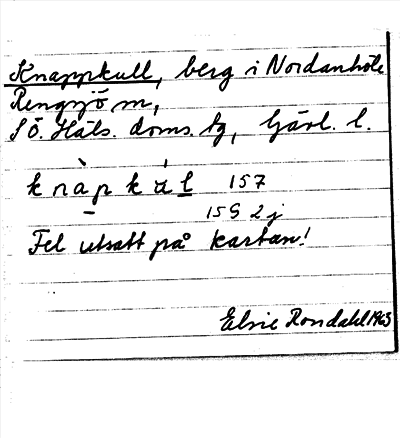 Knappkull, berg i Nordanhöle
Rengsjö sn,
Sö. Häls. doms. hg, Gävl. l.
knàpkúl 157
15G 2j
Fel utsatt på kartan!
Elsie Rondahl 1963